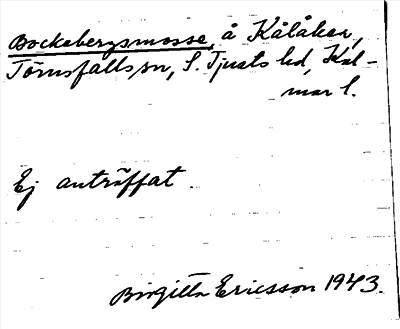 Bockebergsmosse, å Kålåker,
Törnsfalls sn, S. Tjusts hd, Kal-
mar l.
Ej anträffat.
Birgitta Ericsson 1943.